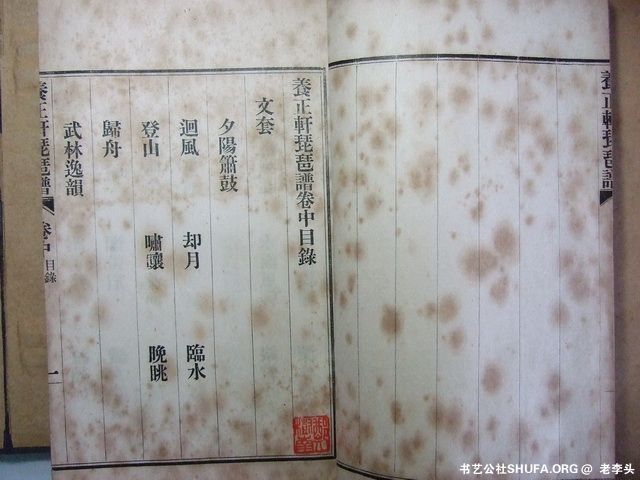 養正軒琵琶譜
養正軒琵琶譜卷中目錄
文套
夕陽簫鼓
迴風 却月 臨水
登山 嘯嚷 晚眺
歸舟
武林逸韻
養正軒琵琶譜 卷中 目錄 一
书艺公社SHUFA.ORG @ 老李头